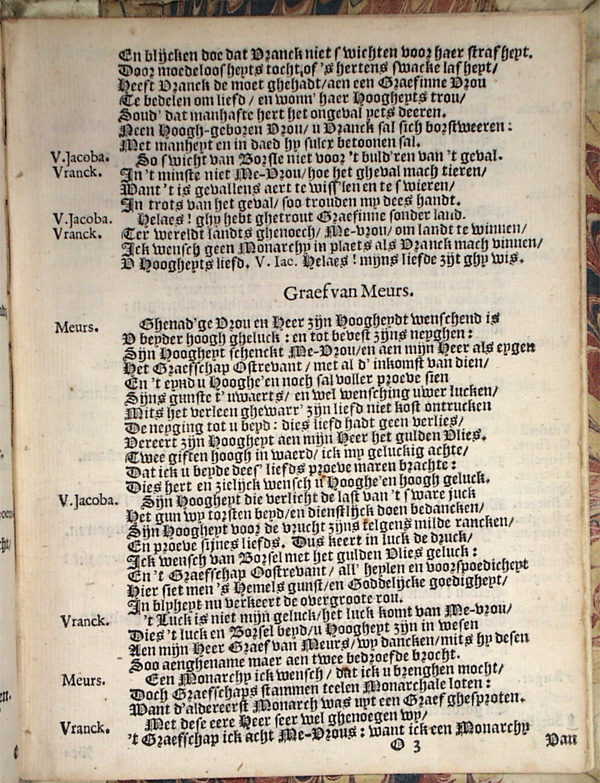 En blijcken doe dat Vranck niet swichten voor haer strafheyt.
Door moedeloosheyts tocht, of 's hertens swacke lasheyt/
Heeft Vranck de moet ghehadt/aen een Graefinne Vrou
Te bedelen om liefd / en wonn' haer Hoogheyts trou/
Soud' dat manhafte hert het ongeval yets deeren.
Neen Hoogh-geboren Vrou/ u Vranck sal sich borstweeren:
Met manheyt en in daed hy sulcx betoonen sal.
V.Jacoba. So swicht van Borsle niet voor 't buld'ren van 't geval.
Vranck. In 't minste niet Me-Vrou/hoe het gheval mach tieren/
Want 't is gevallens aert te wiss'len en te swieren/
In trots van het geval/ soo trouden my dees handt.
V.Jacoba. Helaes! ghy hebt ghetrout Graefinne sonder land.
Vranck. Ter wereldt landts ghenoech/ Me-vrou/ om landt te winnen/
Ick wensch geen Monarchy in plaets als Vranck mach vinnen/
V Hoogheyts liefd. V. Iac. Helaes! mijns liefde zijt ghy wis.
Graef van Meurs.
Meurs. Ghenad'ge Vrou en Heer zijn Hoogheydt wenschend is
V beyder hoogh gheluck: en tot bevest zijns neyghen:
Sijn Hoogheyt schenckt Me-Vrou/en aen mijn Heer als eygen
Het Graefschap Ostrevant / met al d' inkomst van dien/
En 't eynd u Hooghe'en noch sal voller proeve sien
Sijns gunste t'uwaerts/ en wel wensching uwer lucken/
Mits het verleen ghewarr' zijn liefd niet kost ontrucken
De neyging tot u beyd: dies liefd hadt geen verlies/
Vereert zijn Hoogheyt aen mijn Heer het gulden Vlies.
Twee giften hoogh in waerd/ ick my geluckig achte/
Dat ick u beyde dees' liefds proeve maren brachte:
Dies hert en zielijck wensch u Hooghe'en hoogh geluck.
V.Jacoba. Sijn Hoogheyt die verlicht de last van 't sware juck
Het gun wy torsten beyd/en dienstlijck doen bedancken/
Sijn Hoogheyt voor de vrucht zijns telgens milde rancken/
En proeve sijnes liefds. Dus keert in luck de druck/
Ick wensch van Borsel met het gulden Vlies geluck:
En 't Graefschap Oostrevant/ all' heylen en voorspoedicheyt
Hier siet men 's Hemels gunst/en Goddelijcke goedigheyt/
In blyheyt nu verkeert de overgroote rou.
Vranck. 't Luck is niet mijn geluck/het luck komt van Me-vrou/
Dies 't luck en Borsel beyd/u Hoogheyt zijn in wesen
Aen mijn Heer Graef van Meurs/wy dancken/mits hy desen
Soo aenghename maer aen twee bedroefde brocht.
Meurs. Een Monarchy ick wensch / dat ick u brenghen mocht/
Doch Graefschaps stammen teelen Monarchale loten:
Want d'aldereerst Monarch was uyt een Graef ghesproten.
Vranck. Met dese eere Heer seer wel ghenoegen wy/
't Graefschap ick acht Me-Vrous: want ick een Monarchy
O 3 Van